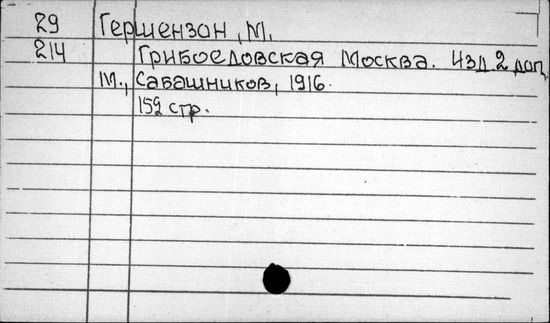 29 Гершензон, М.
214 Грибоедовская Москва. Изд. 2 доп.
М., Сабашников, 1916.
159 стр.